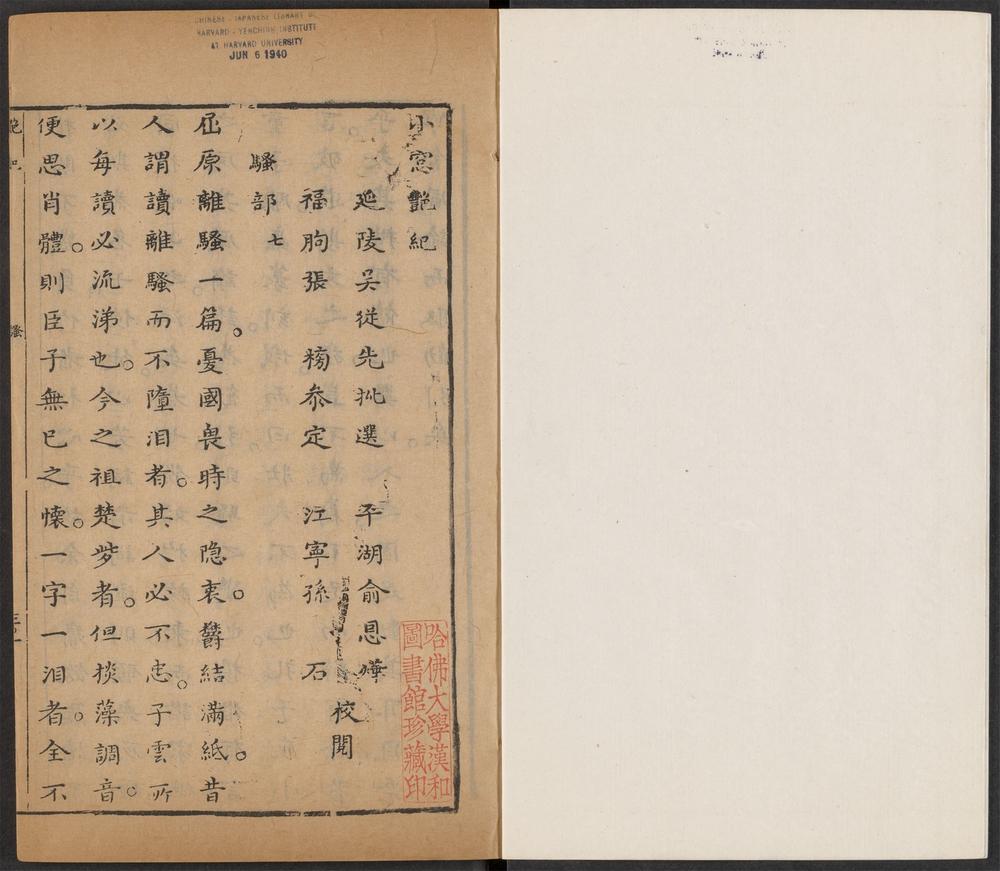 CHINESE - JAPANESE LIBRARY OF
HARVARD - YENCHING INSTITUTE
AT HARVARD UNIVERSITY
JUN 6 1940
小窓艷紀
延陵吳從先批選　平湖俞恩燁
福朐張　榜叅定　江寧孫　石
校閱
騷部七
屈原離騷一篇。憂國畏時之隐衷。欝結滿紙。昔
人謂讀離騷而不墮泪者。其人必不忠。子雲所
以每讀必流涕也。今之祖楚辤者。但掞藻調音。
便思肖體。則臣子無已之懷。一字一泪者。全不
騷
哈佛大學漢和
圖書館珍藏印